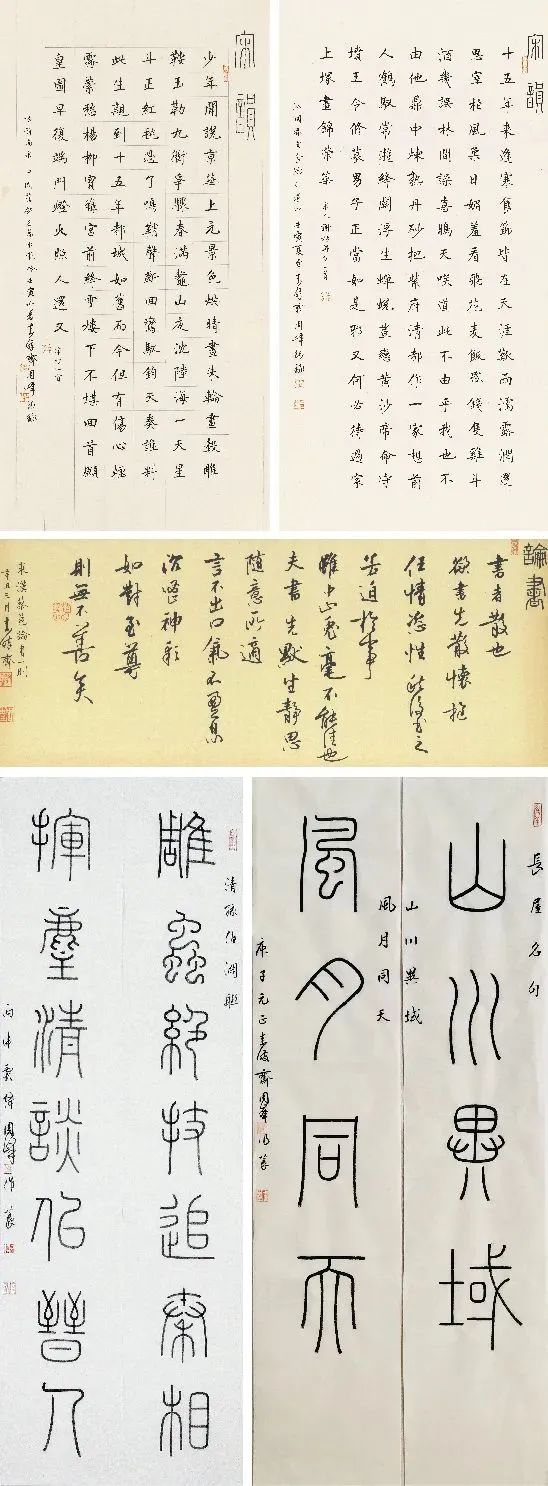 宋韻
少年聞說京華上元景色烘晴晝朱輪畫轂雕
鞍玉勒九衢爭驟春滿鰲山夜沈陸海一天星
斗正紅毬過了鳴鞘聲斷回鸞馭鈞天奏誰料
此生親到十五年都城如舊而今但有傷心煙
霧縈愁楊柳寶籙宮前絳霄樓下不堪回首願
皇圖早復端門燈火照人還又
宋韻
十五年來逢寒食節皆在天涯歎雨濡露潤還
思宰柏風柔日媚羞看飛花麥飯紙錢隻雞斗
酒幾誤林間噪喜鴉天笑道此不由乎我也不
由他鼎中煉熟丹砂把紫府清都作一家想前
人鶴馭常遊絳闕浮生蟬蛻豈戀黃沙帝命守
墳王令修墓男子正當如是耶又何必待過家
上塚晝錦榮華
論書
書者散也
欲書先散懷抱
任情恣性然後書之
若迫於事
雖中山兔毫不能佳也
夫書先默坐靜思
隨意所適
言不出口氣不盈息
沉密神彩
如對至尊
則無不善矣
東漢蔡邕論書一則
辛丑三月
清孫伯淵聯
雕蟲絕技追秦相
揮麈清談似晉人
丙申 周峰作篆
長屋名句
山川異域
山川異域
風月同天
風月同天
庚子元正 齋周峰作篆